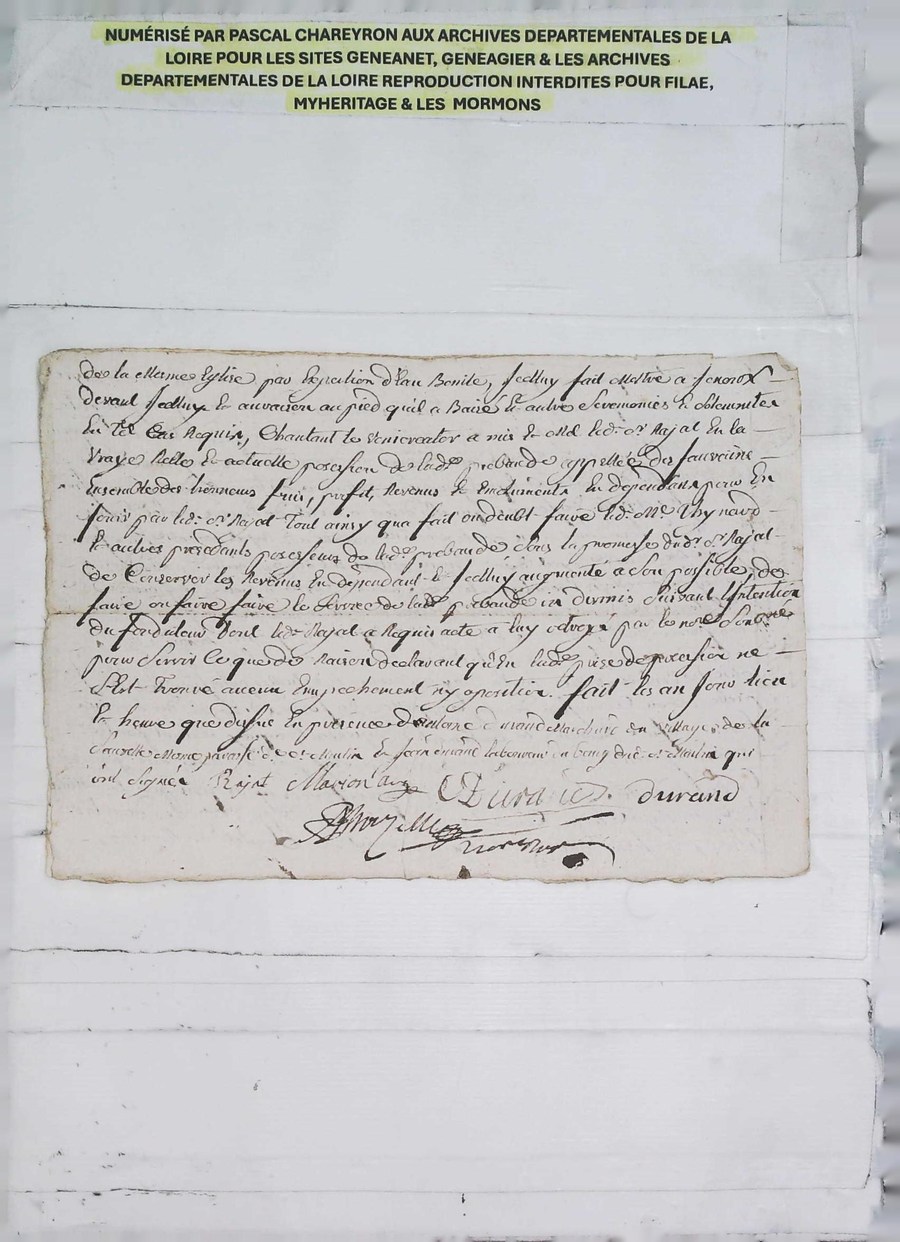 NUMÉRISÉ PAR PASCAL CHAREYRON AUX ARCHIVES DEPARTEMENTALES DE LA
LOIRE POUR LES SITES GENEANET, GENEAGIER & LES ARCHIVES
DEPARTEMENTALES DE LA LOIRE REPRODUCTION INTERDITES POUR FILAE,
MYHERITAGE & LES MORMONS
de la mesme Eglise par Expection d'Eau Benite, Icelluy fait mettre a Genoux
devant Icelluy Et au pied quil a Baisé Et autre Seremonies Et solemnites
En Tel Cas Requis, Chantant le Venicreator a mis Et led. sr. Rajat En la
Vraye Reelle Et actuelle posession de lad. prebande appellée des
Ensemble des honneurs fruis, profit, Revenus Et Emoluments En dependants pour En
Jouir par led. sr. Rajat Tout ainsy que fait ou deubt faire led. Me.
Et autres precedants posesseurs de lad. prebande sous la promesse dud. sr. Rajat
de Conserver les Revenus En dependant Et Icelluy augmenté a son possible, de
faire ou faire faire le Service de lad. prebande suivant l'Intention
du fondateur dont led. Rajat a Requis acte a luy octroyé par le nore.
pour Servir Ce que de Raison declarant qu'En lad. prise de posession ne
S'Est Trouvé aucun Empechement ny oposition. fait les an Jour lieu
Et heure que dessus En presence d'Antoine durand du village de la
Et Jean laboureur du bourg dud. qui
ont Signée Rajat Durand durand